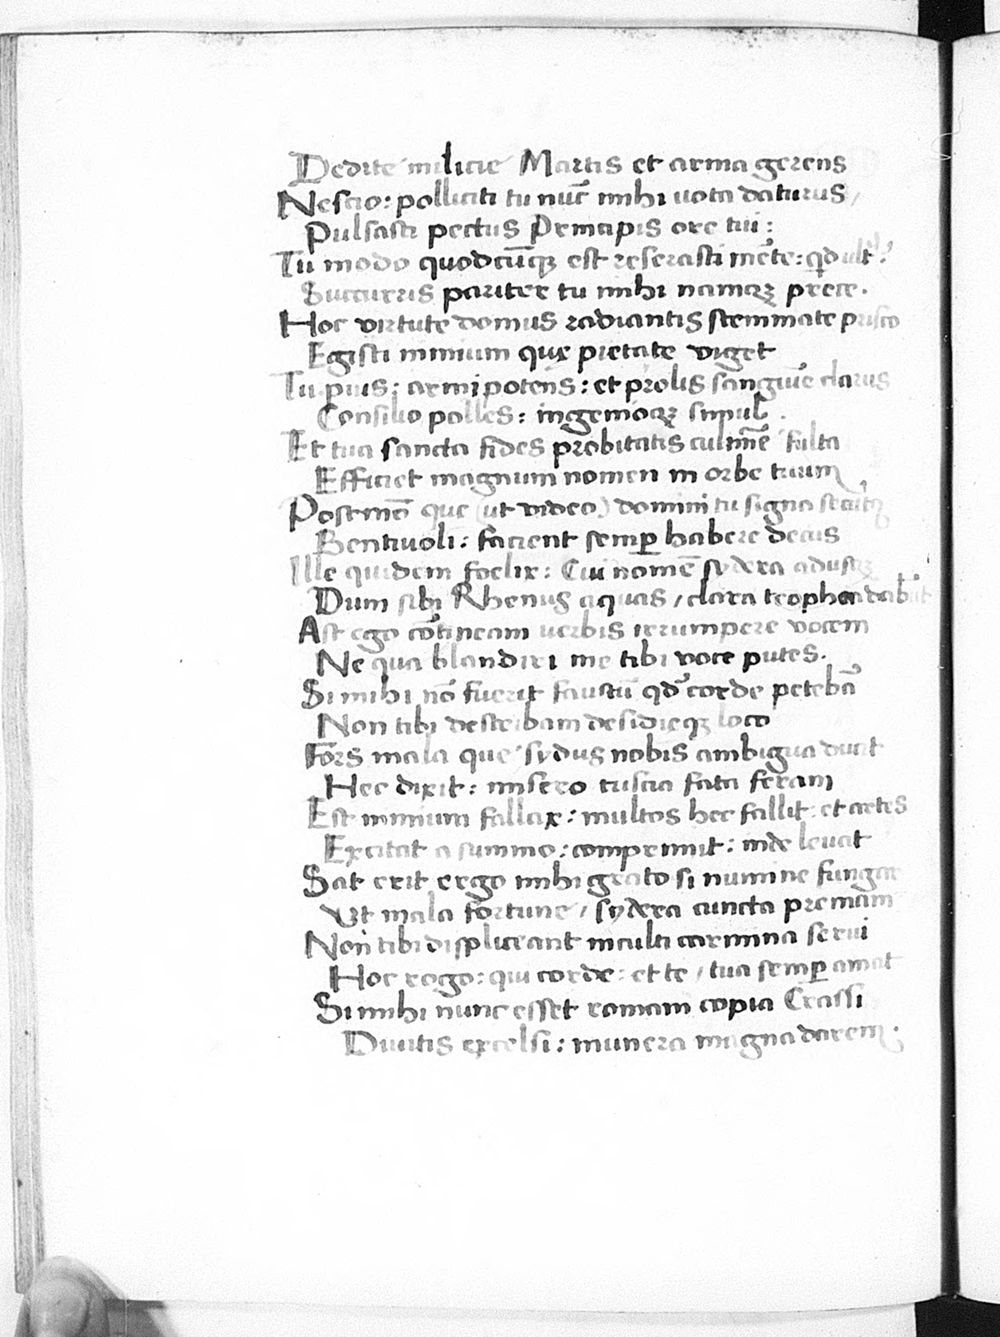 Dedite milicie Martis et arma gerens
Nescio: polliciti tu nūc mihi uota daturus,
Pulsasti pectus Principis ore tui:
Tu modo quodcūqȝ est reserasti mēte:
Succurris pariter tu mihi namqȝ prece.
Hoc virtute domus radiantis stemmate prisco
Egisti nimium qux pietate viget
Tu pius: armipotens: et prolis sanguīe clarus
Consilio polles: ingenioqȝ simul.
Et tua sancta fides probitatis culmīe fulta
Efficiet magnum nomen in orbe tuum
Postmōȝ que (ut video) domini tu signa
Bentiuoli: facient semꝑ habere decus
Ille quidem foelix: Cui nomēȝ sydera
Dum sibi Rhenus aquas, clara trophea dabit
Ast ego cōtineam uerbis irrumpere vocem
Ne qua blandiri me tibi voce putes.
Si mihi nō fuerit faustū qđ corde petebā
Non tibi describam desidieqȝ loco
Fors mala que sydus nobis ambigua ducit
Hec dixit: misero tuscia fata feram
Est nimium fallax: multos hec fallit: et artes
Excitat a summo: comprimit: inde leuat
Sat erit ergo mihi grato si numine fungar
Vt mala fortune, sydera cuncta premam
Non tibi displiceant inculti carmina serui
Hoc rogo: qui corde: et te, tua semꝑ amat
Si mihi nunc esset romam copia Crassi
Diuitis excelsi: munera magna darem.